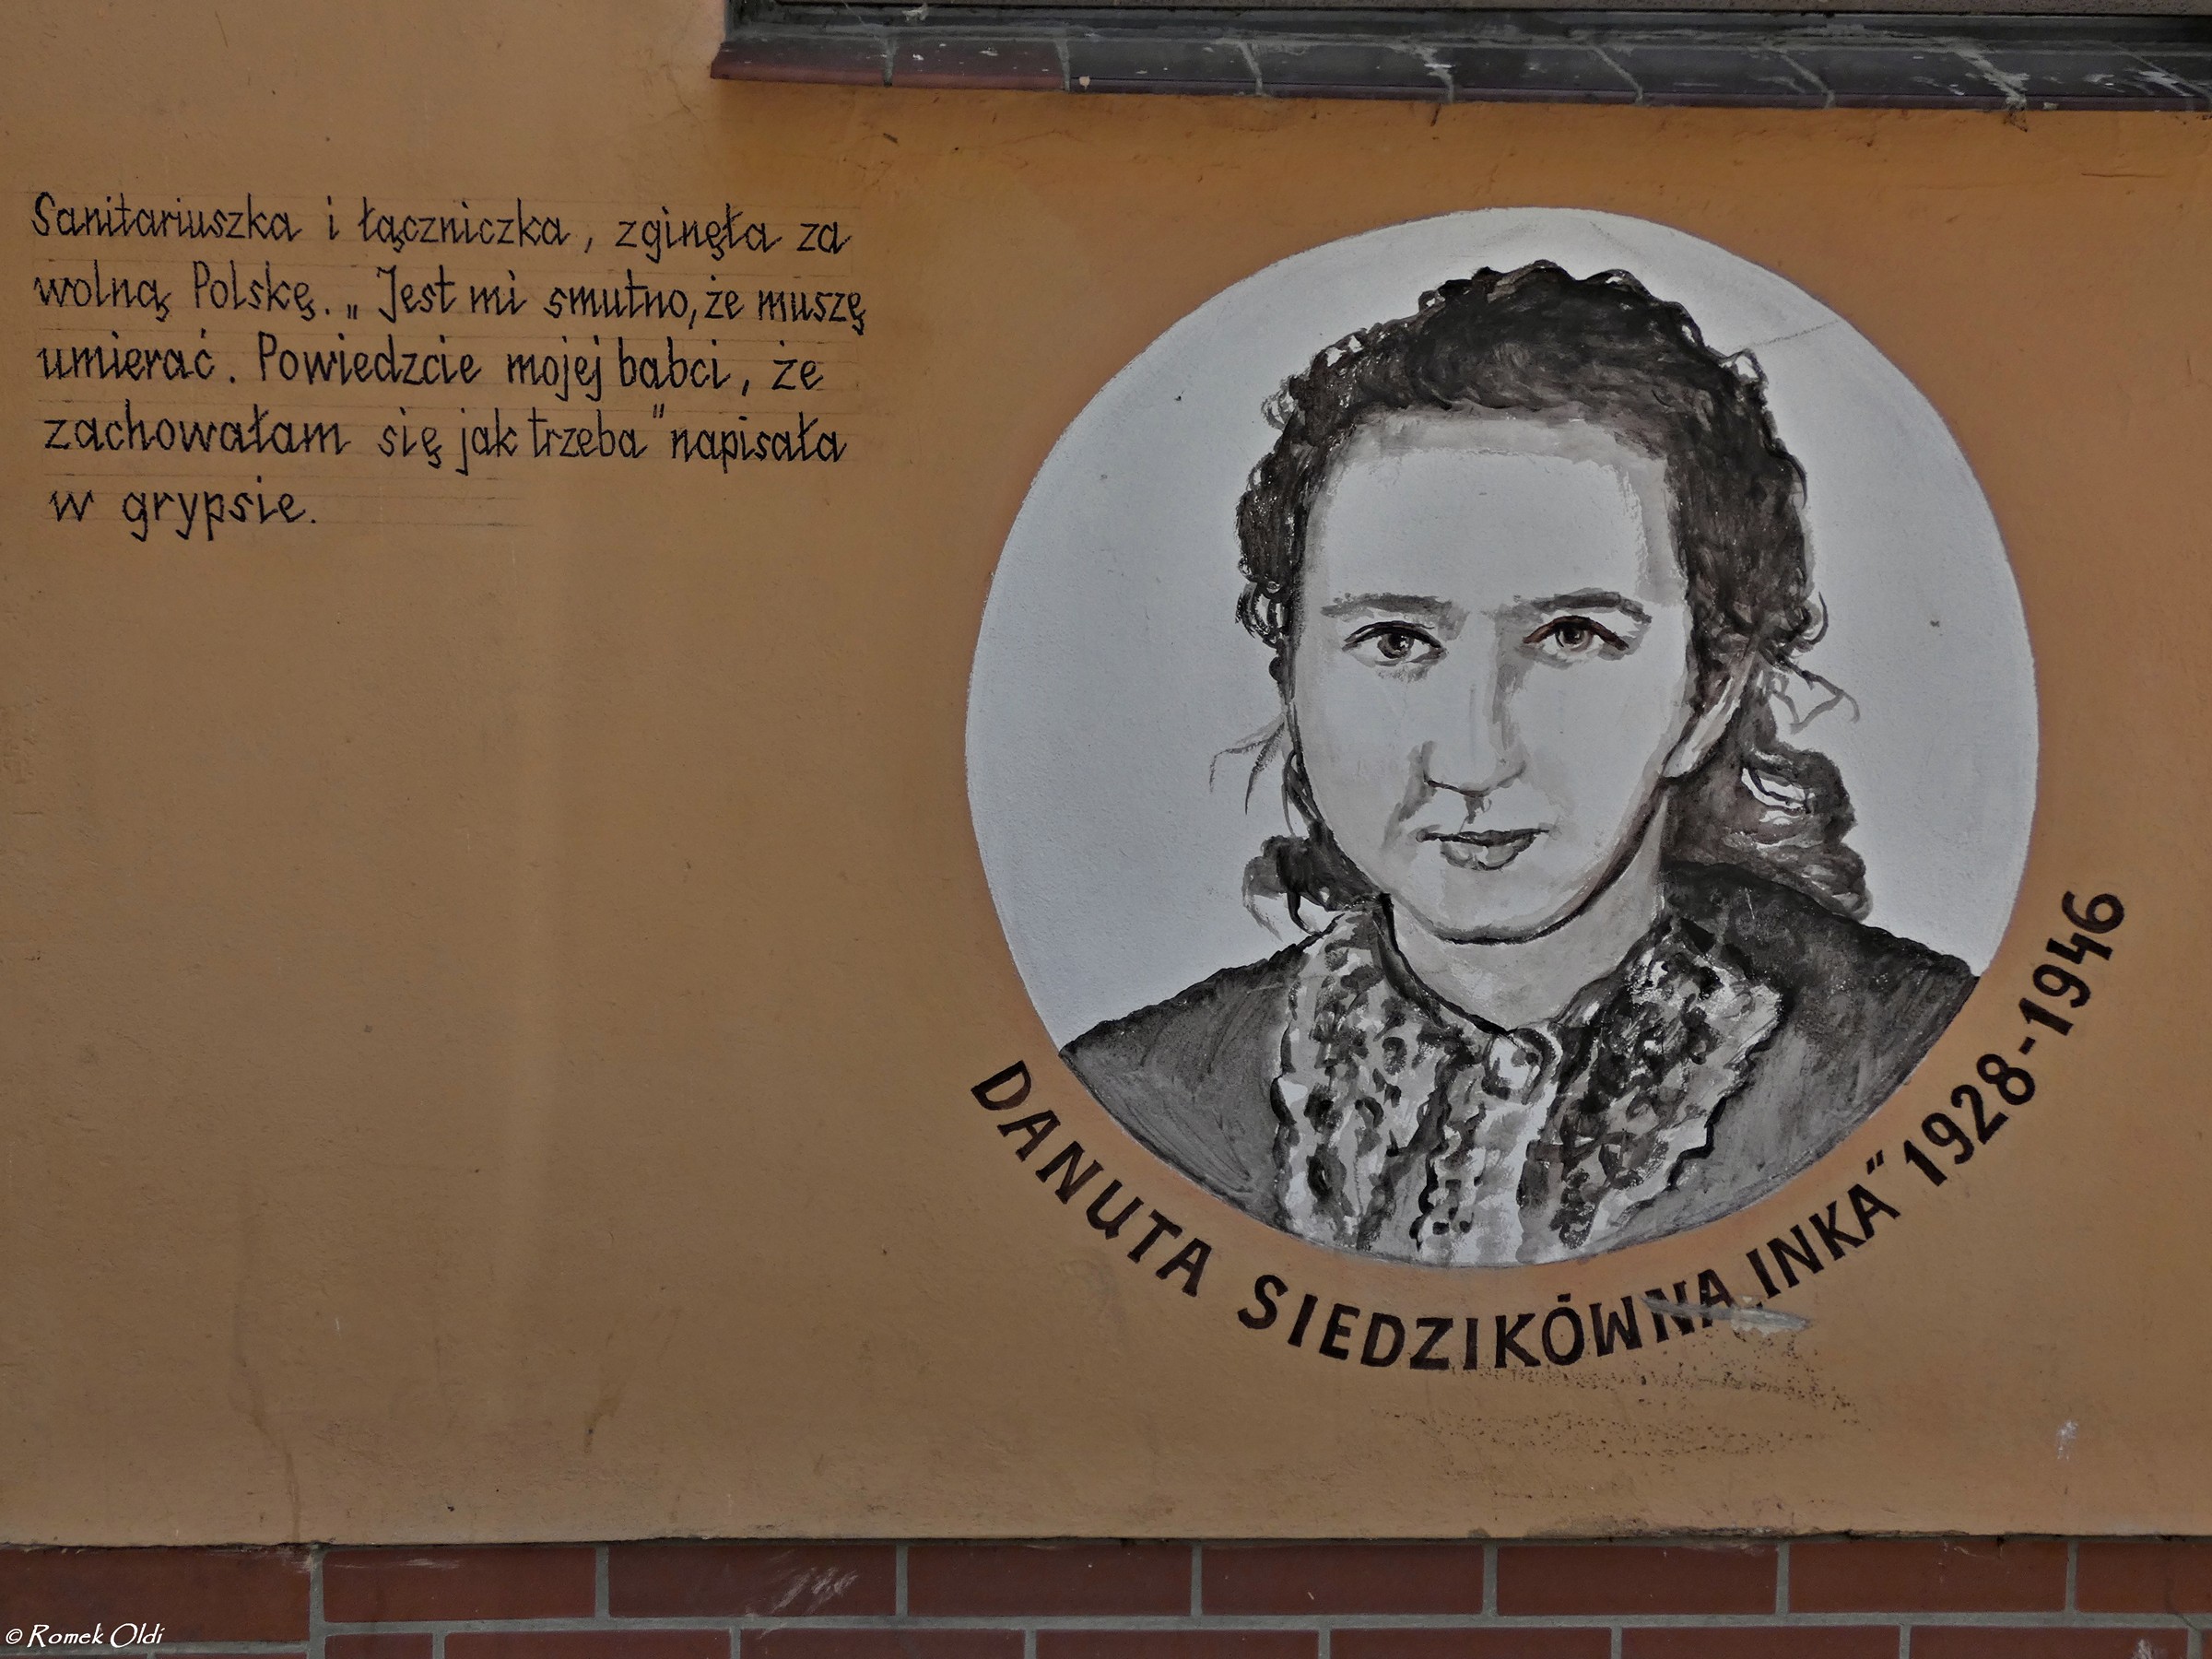 Sanitariuszka i łączniczka, zginęła za
wolną Polskę. „Jest mi smutno, że muszę
umierać. Powiedzcie mojej babci, że
zachowałam się jak trzeba" napisała
w grypsie.
DANUTA SIEDZIKÓWNA „INKA" 1928-1946
© Romek Oldi